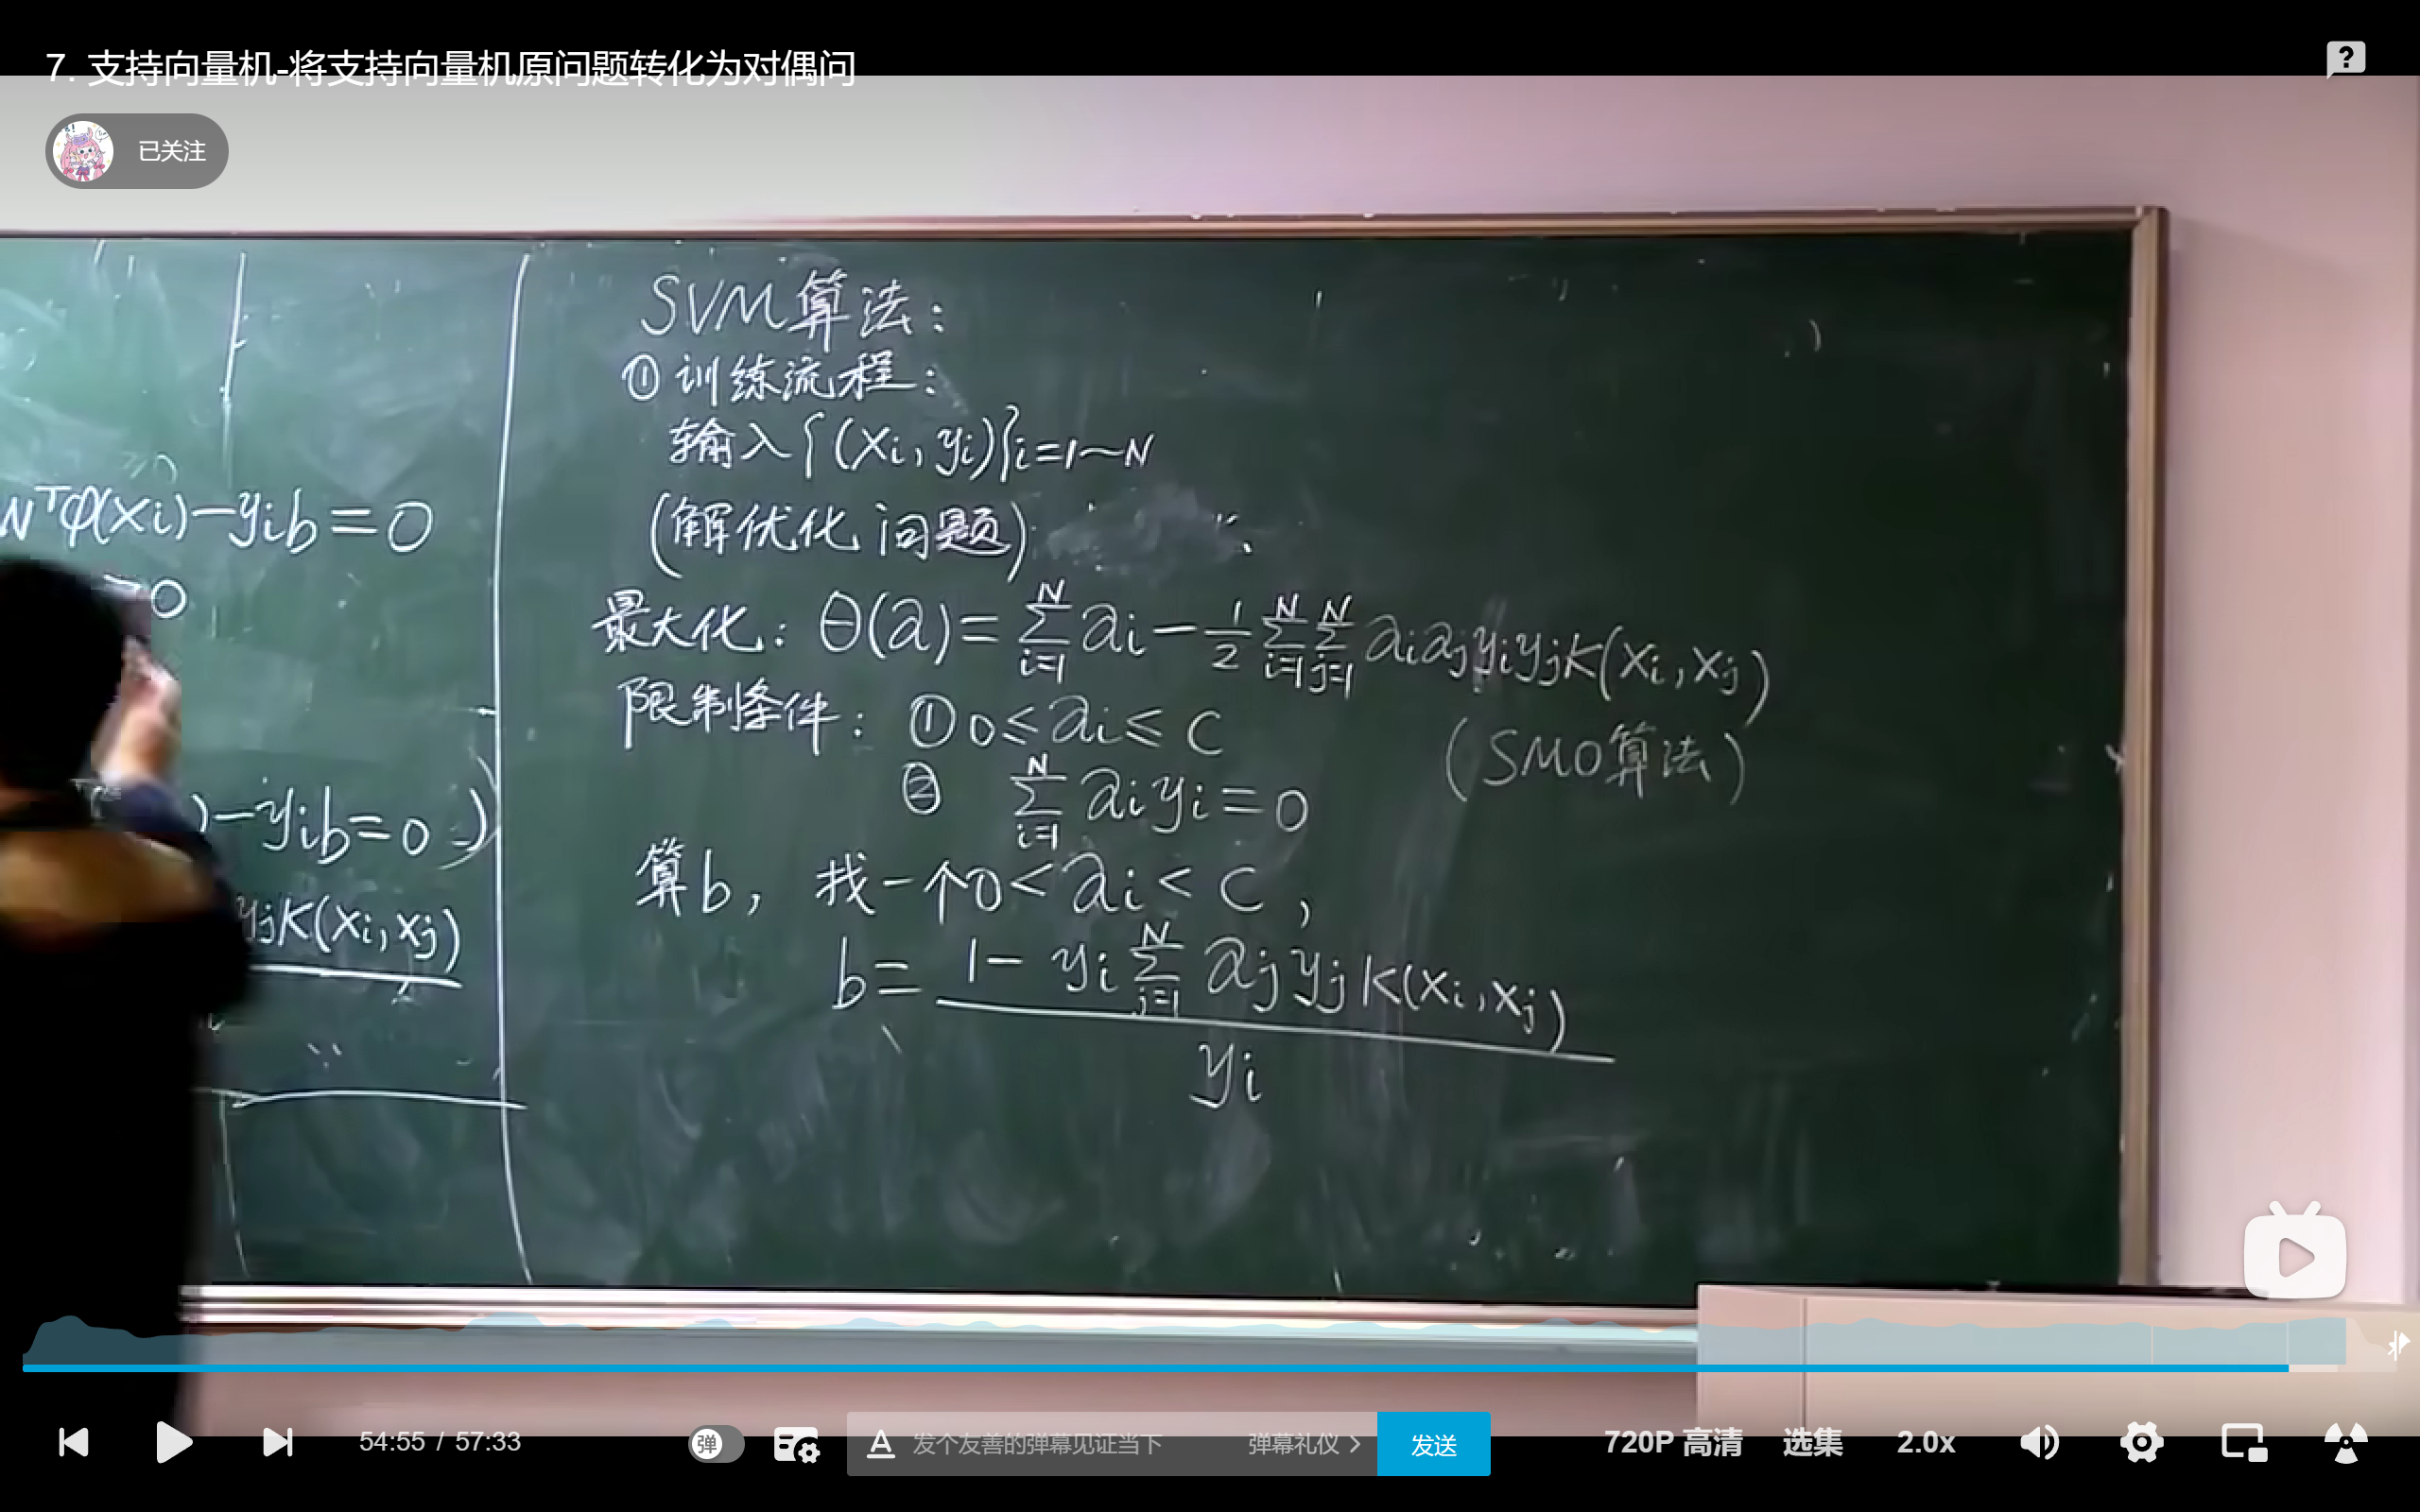 7. 支持向量机-将支持向量机原问题转化为对偶问
已关注
wᵀφ(xi)-yib=0
0
)-yib=0 )
yjK(xi,xj)
SVM算法:
① 训练流程:
输入{(xi,yi)}i=1~N
(解优化问题)
最大化: θ(α)=∑_{i=1}^{N} αi - 1/2 ∑_{i=1}^{N} ∑_{j=1}^{N} αiαjyiyjK(xi,xj)
限制条件: ① 0≤αi≤C
(SMO算法)
② ∑_{i=1}^{N} αiyi=0
算b, 找一个0<αi<C,
b= 1-yi∑_{j=1}^{N} αjyjK(xi,xj)
yi
54:55 / 57:33
弹
发个友善的弹幕见证当下
弹幕礼仪
发送
720P 高清
选集
2.0x